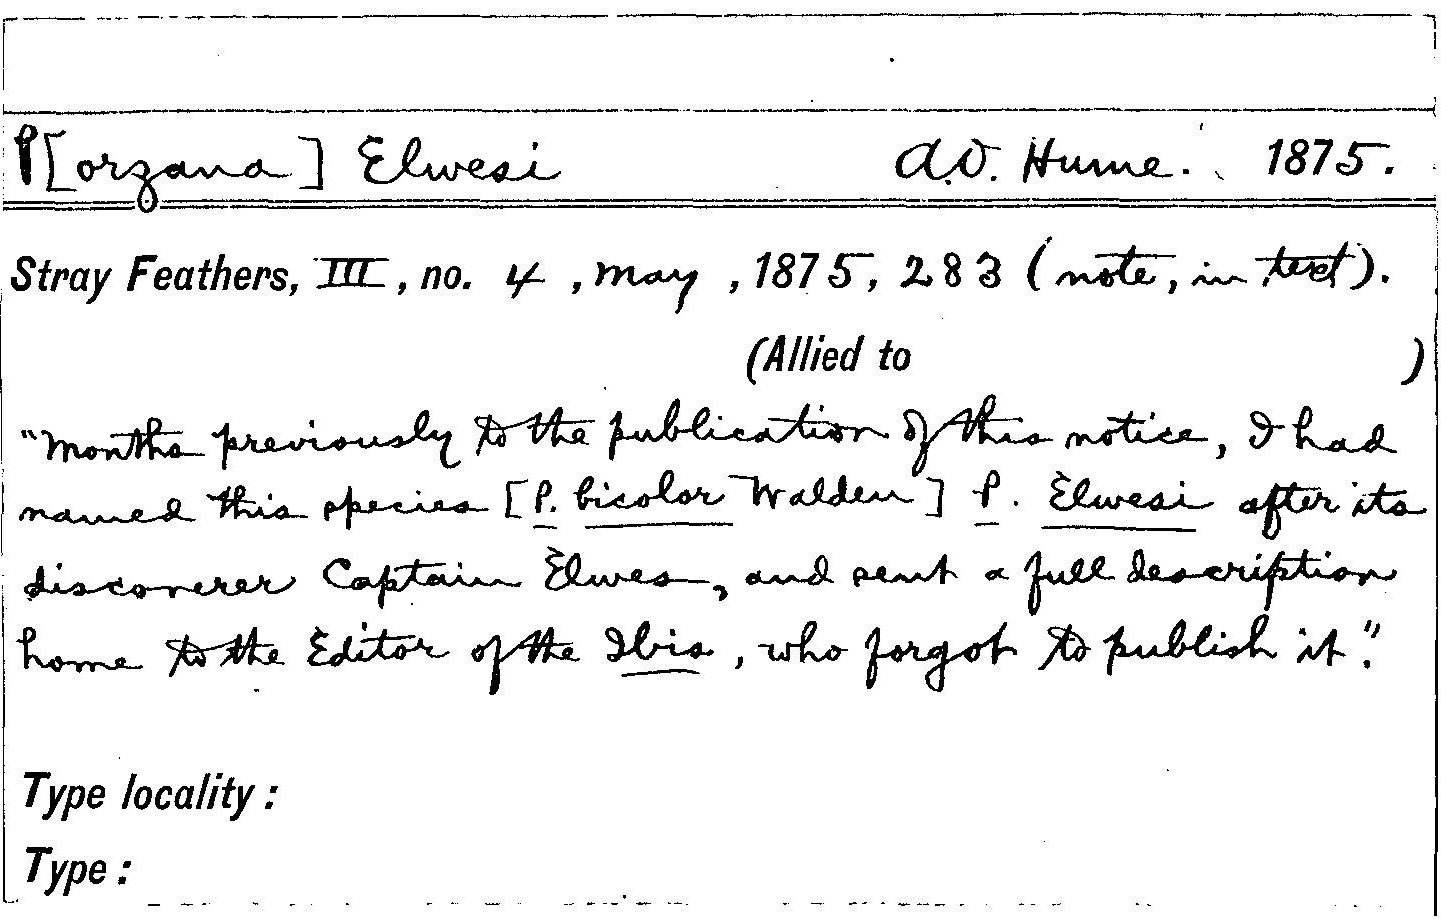 P[orzana] Elwesi A.O. Hume. 1875.
Stray Feathers, III, no. 4, May, 1875, 283 (note, in text).
(Allied to )
"Months previously to the publication of this notice, I had
named this species [P. bicolor Walden] P. Elwesi after its
discoverer Captain Elwes, and sent a full description
home to the Editor of the Ibis, who forgot to publish it."
Type locality:
Type: